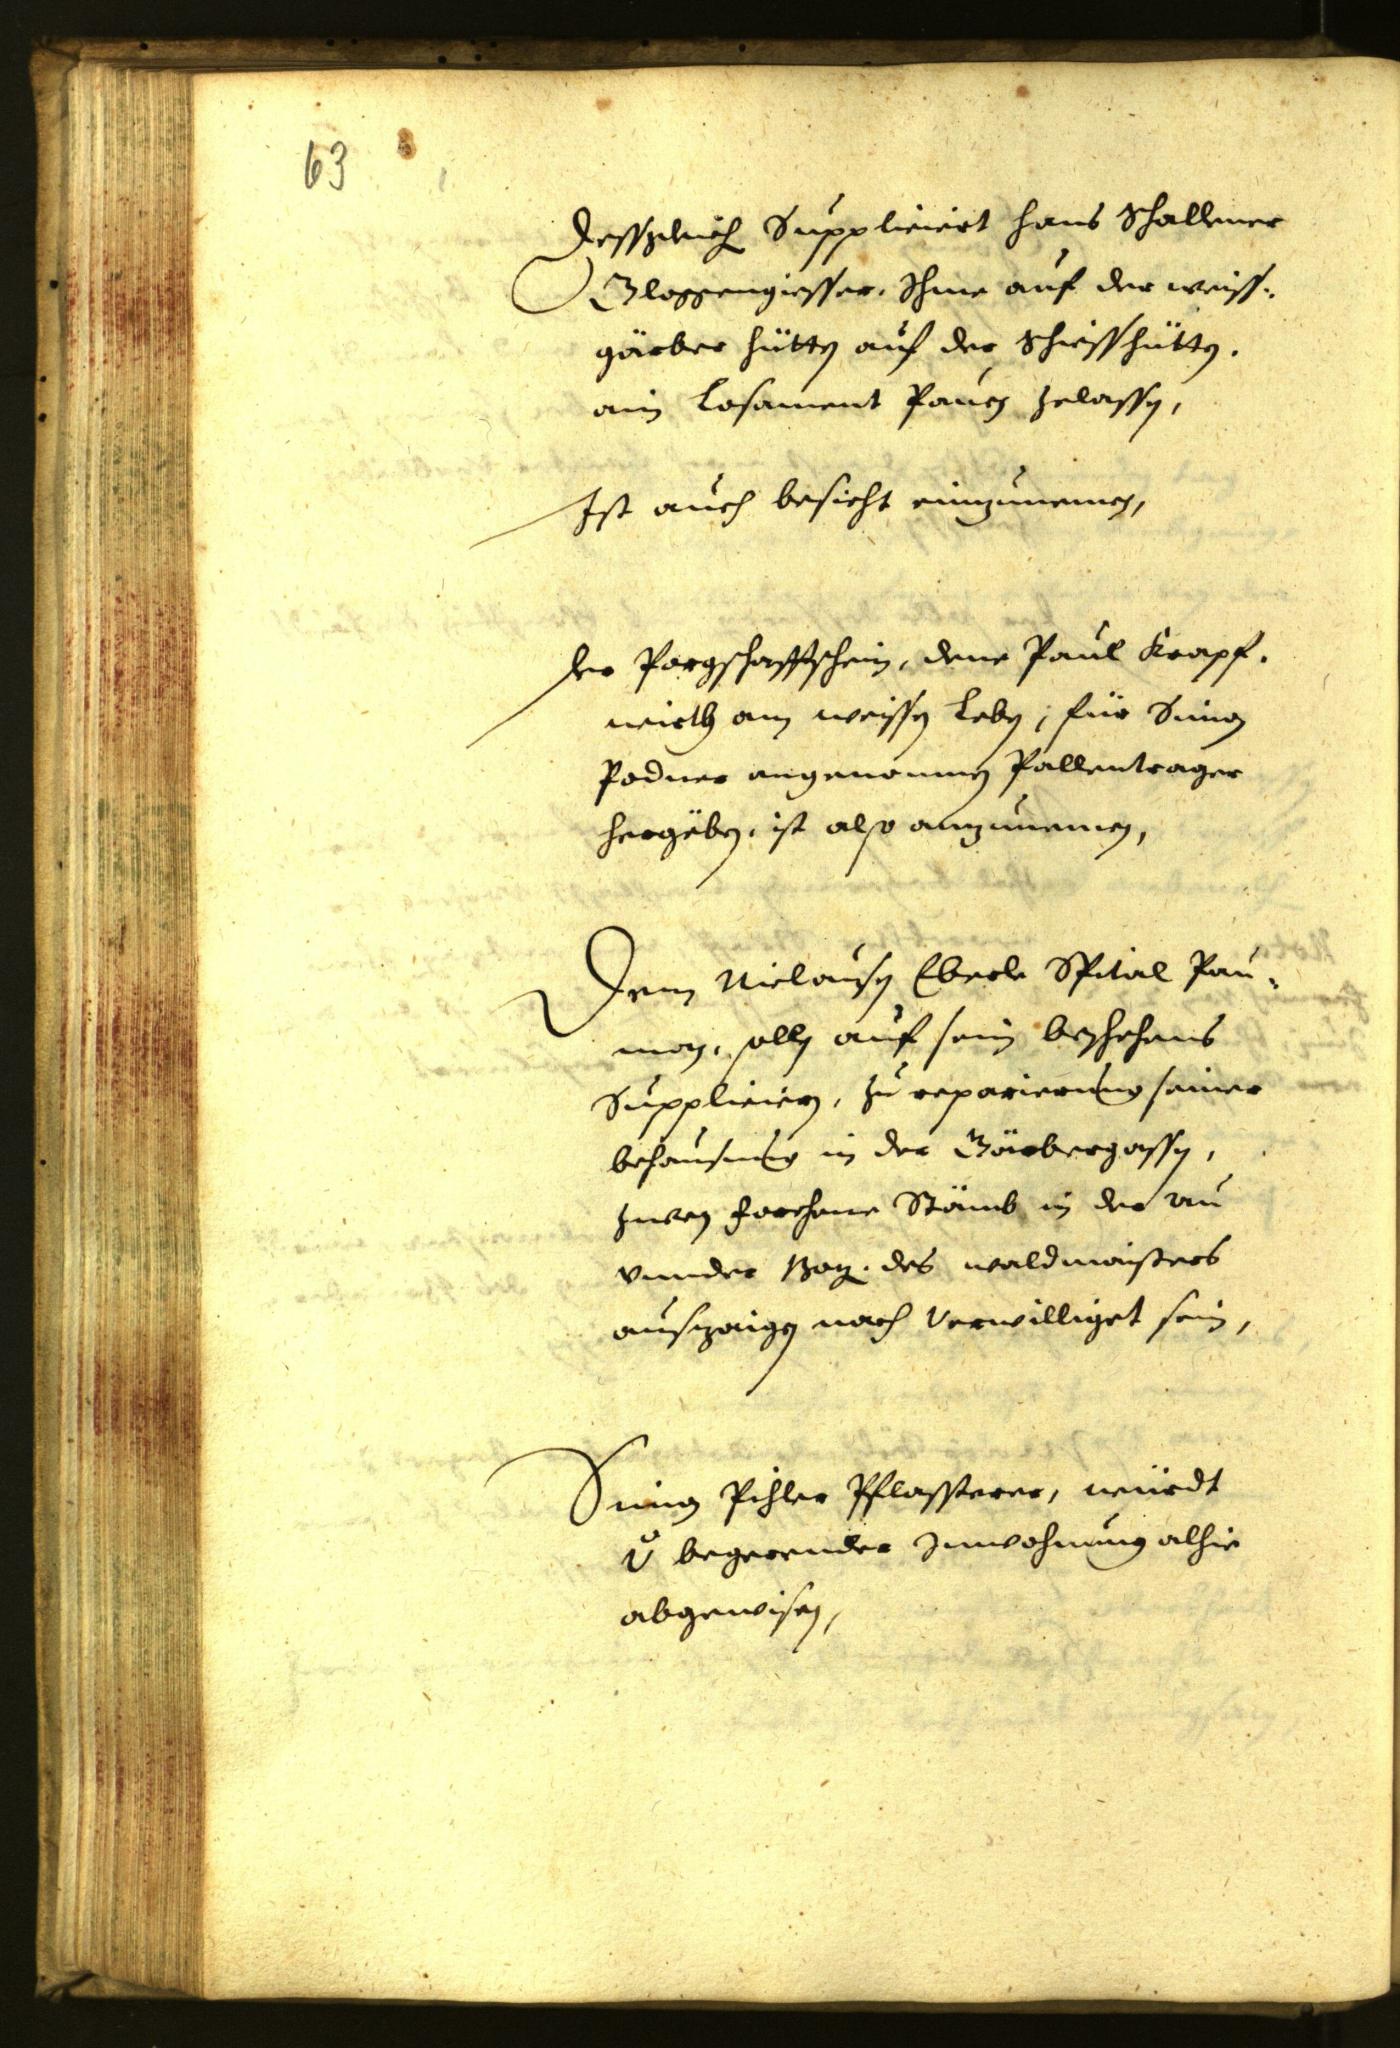 63
Dessgleich Suppliciert Hans Schallmer
Gloggengiesser, Ihme auf der weiss-
gärber hütten auf der Schiesshütten.
ain Losament Pauen zelassen,
Ist auch besicht einzunemen,
Der Porgschafftschein, deme Paul Krapf.
wirth am weissen Leben, für Simon
Podner angenomnen Pallentrager
hergeben, ist also anzunemen,
Dem Niclausen Eberle Spital Pau-
man, sollen auf sein beschehens
Supplicieren, zu reparierung seiner
behausung in der Gärbergassen,
zwen forchene Stämb in der au
vunder Boz. des waldmaisters
auszaigen nach verwilliget sein,
Simon Pichler Pflassterer, würdt
begerender Inwohnung alhie
abgewisen,